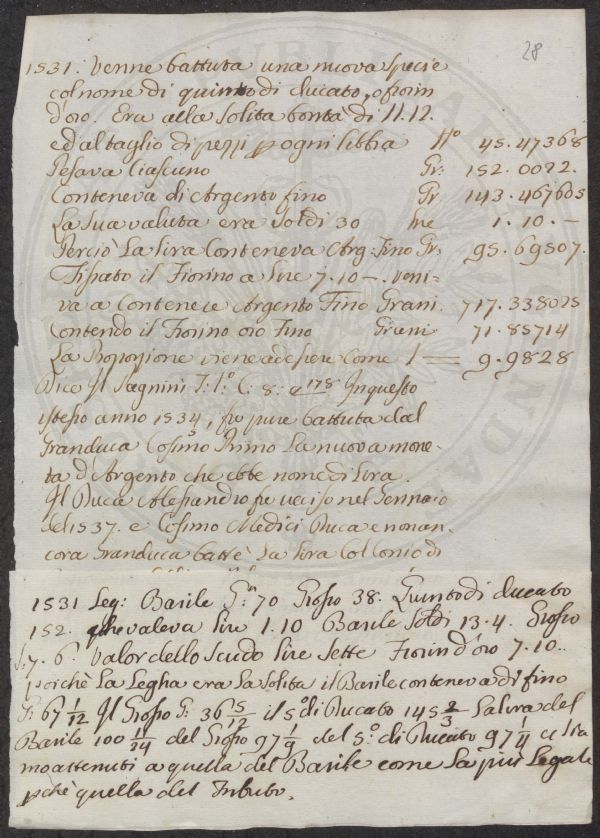 28
1531. Venne battuta una nuova specie
col nome di quinto di ducato, o fiorin
d'oro. Era alla solita bontà di 11.12.
ed al taglio di pezzi p ogni libbra No 45.47368
Pesava Ciascuno Gr: 152.0092.
Conteneva di Argento fino Gr. 143.467605
La sua valuta era soldi 30 Lire 1.10.—
Perciò La Lira Conteneva Arg: fino Gr: 95.69507.
Fissato il Fiorino a Lire 7.10—. veni-
va a Contenere Argento Fino Grani. 717.338025
Contendo il Fiorino oro Fino Grani 71.85714
La Proporzione viene ad essere Come 1 — 9.9828
Dice Il Pagnini T: 1:o C: 8: a 178. In questo
istesso anno 1534, fu pure battuta dal
Granduca Cosimo Primo La nuova mone-
ta d'Argento che ebbe nome di Lira.
Il Duca Alessandro fu ucciso nel Gennaio
del 1537. e Cosimo Medici Duca e non an-
cora Granduca battè La Lira Col Conio di
1531 Seg: Barile G:ni 70 Grosso 38. Quinto di ducato
152. che valeva Lire 1.10 Barile Soldi 13.4. Grosso
S. 7.6. Valor dello Scudo Lire Sette Fiorin d'oro 7.10..
poichè La Legha era La Solita il Barile conteneva di fino
G: 67 1/12 Il Grosso G: 36 5/12 il 5:o di Ducato 145 2/3 La lira del
Barile 100 11/24 del Grosso 97 1/9 del 5:o di Ducato 97 1/4 ci sia
mo attenuti a quella del Barile come La più Legale
pchè quella del Tributo.